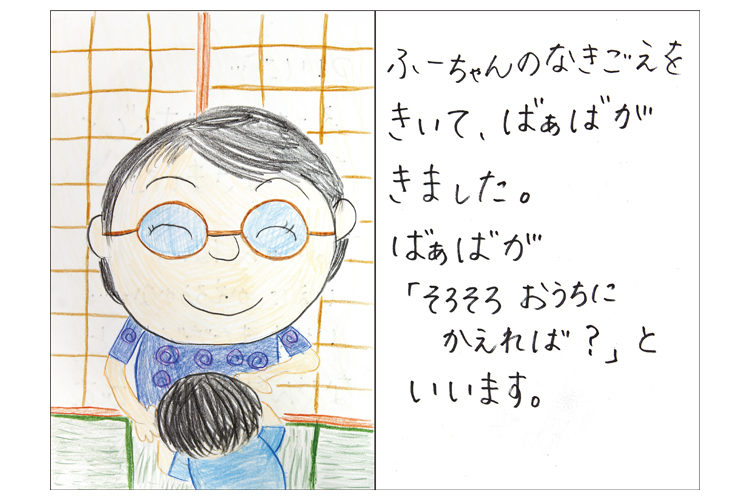 ふーちゃんのなきごえを
きいて、ばぁばが
きました。
ばぁばが
「そろそろ おうちに
かえれば?」と
いいます。